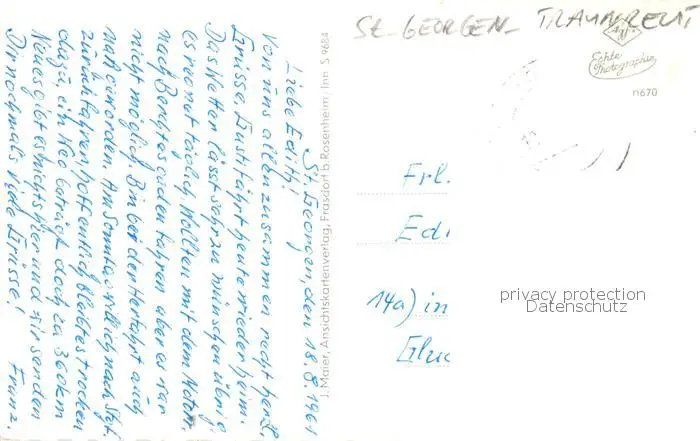 ST. GEORGEN - TRAUNREUT
Echte
Photographie
n670
St. Georgen, den 18. 8. 1961
Liebe Edith!
Von uns allen zusammen recht herzl.
Grüsse. Gusti fährt heute wieder heim.
Das Wetter lässt sehr zu wünschen übrig
es regnet täglich. Wollten mit dem Motorr.
nach Berchtesgaden fahren aber es war
nicht möglich. Bin bei der Herfahrt auch
naß geworden. Am Sonntag will ich nach Stgt.
zurückfahren, hoffentlich bleibt es trocken
dazu, ein Weg beträgt doch ca 360 km
Neues gibt es nichts hier und wir senden
Dir nochmals viele Grüsse! Franz.
J. Maier, Ansichtskartenverlag, Frasdorf b. Rosenheim, Inn S 9684
Frl.
Edi
14a) in
Glu
privacy protection
Datenschutz